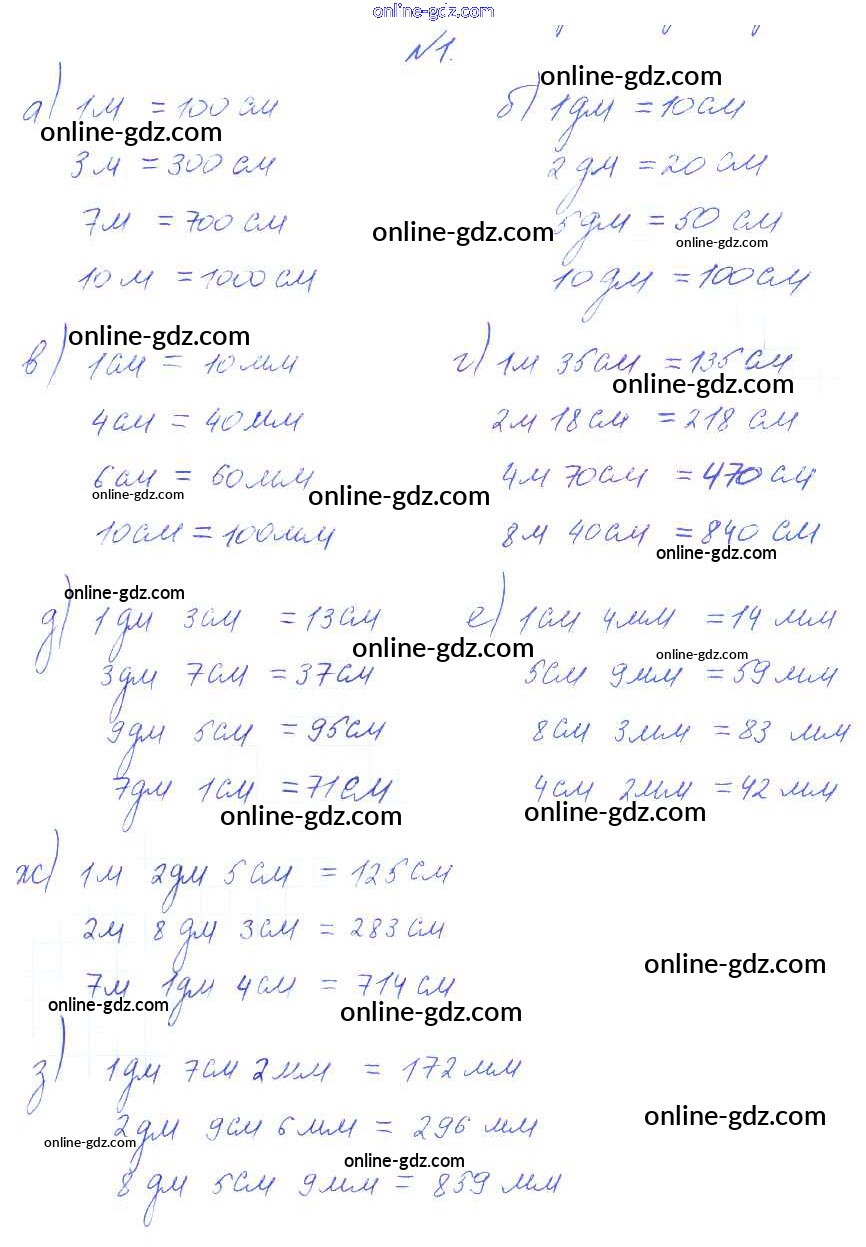 online-gdz.com
№1.
online-gdz.com
а) 1м = 100 см
б) 1дм = 10см
online-gdz.com
3м = 300 см
2 дм = 20 см
7м = 700 см
online-gdz.com
5дм = 50 см
online-gdz.com
10 м = 1000 см
10 дм = 100 см
online-gdz.com
в) 1см = 10 мм
г) 1м 35см = 135 см
online-gdz.com
4см = 40мм
2м 18 см = 218 см
6см = 60мм
4м 70см = 470 см
online-gdz.com
online-gdz.com
10см = 100мм
8м 40см = 840 см
online-gdz.com
online-gdz.com
д) 1 дм 3см = 13см
е) 1см 4мм = 14 мм
online-gdz.com
online-gdz.com
3дм 7см = 37см
5см 9мм = 59 мм
9дм 5см = 95см
8см 3мм = 83 мм
7дм 1см = 71см
4см 2мм = 42 мм
online-gdz.com
online-gdz.com
ж) 1м 2дм 5см = 125см
2м 8 дм 3см = 283 см
online-gdz.com
7м 1дм 4см = 714 см
online-gdz.com
online-gdz.com
з) 1дм 7см 2мм = 172 мм
online-gdz.com
2дм 9см 6мм = 296 мм
online-gdz.com
online-gdz.com
8 дм 5см 9мм = 859 мм